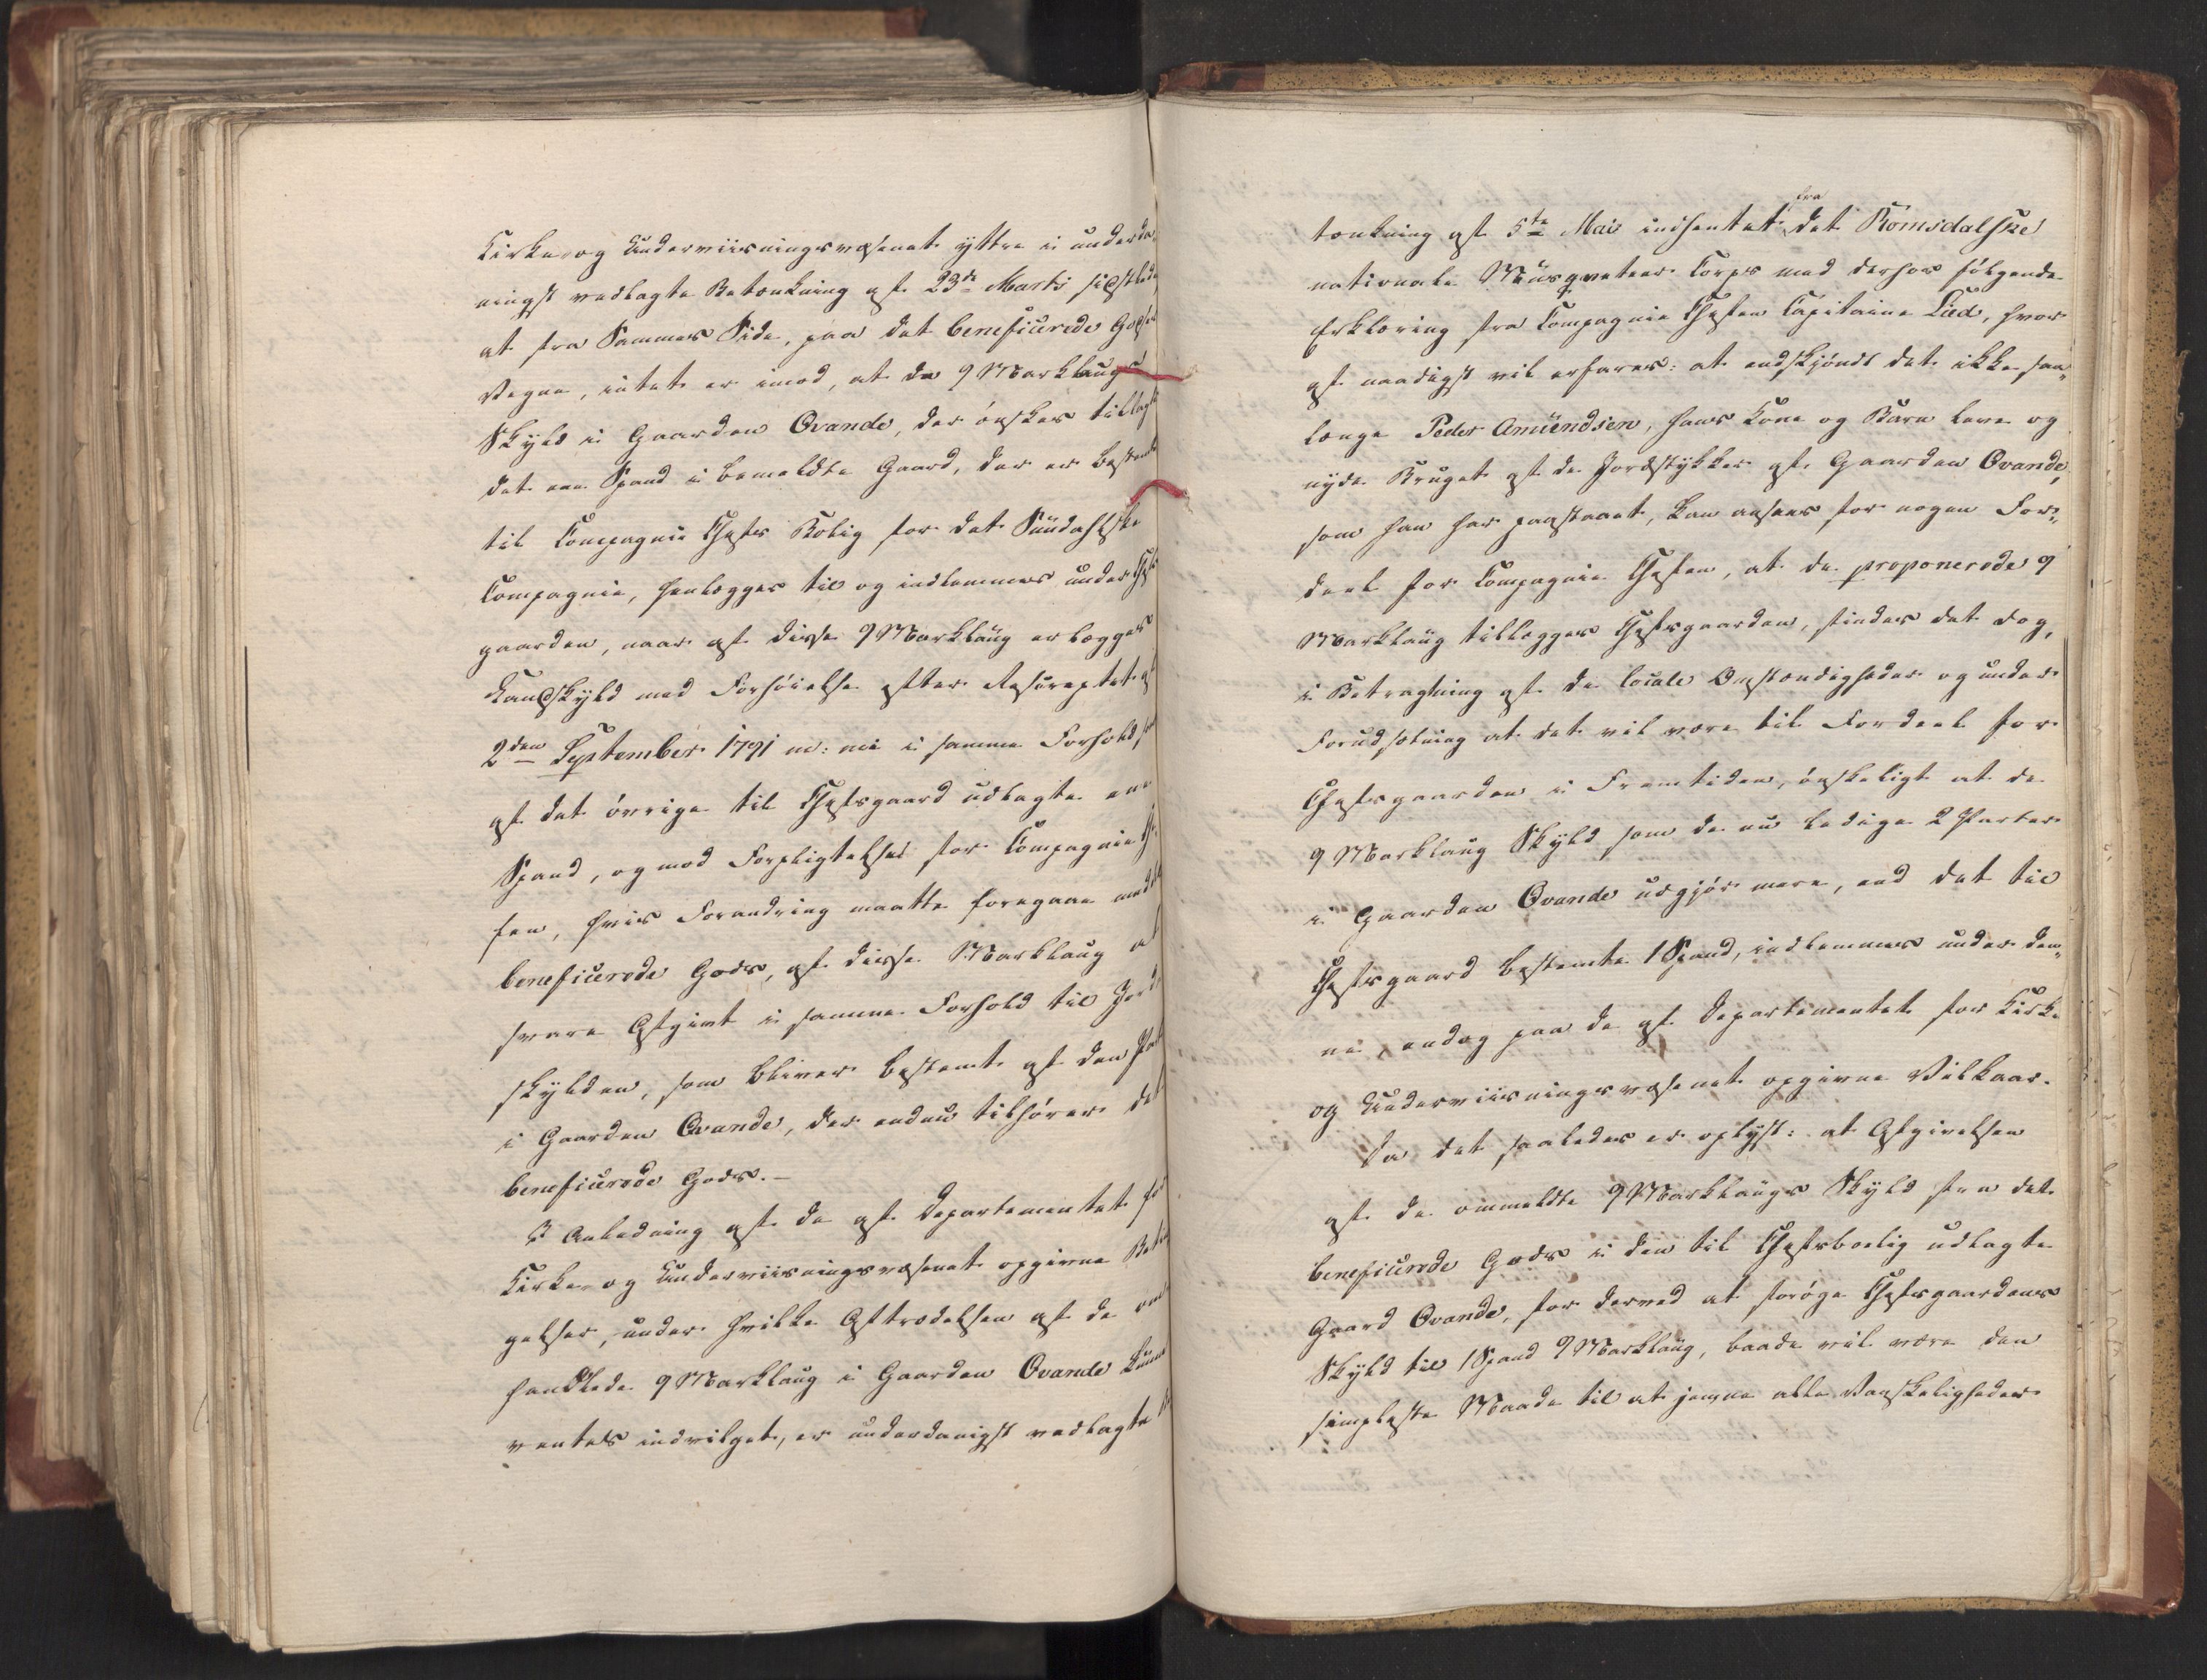 Kirke- og Underviisningsvæsenet yttre i underda-
nigst vedlagte Betænkning af 23de Marts sidstled
at fra Sammes Side, paa det beneficerede Godses
Vegne, intet er imod, at de 9 Marklaugs
Skyld i Gaarden Ovande, der ønskes tillagt
det ene Spand i bemeldte Gaard, der er bestemt
til Compagnie Chefs Bolig for det Sundahlske
Compagnie, henlægges til og indlemmes under Chefs
gaarden, naar af disse 9 Marklaug erlægges
Landskyld med Forhøielse efter Rescriptet af
2den September 1791 m: m: i samme Forhold som
af det øvrige til Chefsgaard udlagte ene
Spand, og mod Forpligtelse for Compagnie Che-
fen, hvis Forandring maatte foregaae med det
beneficerede Gods, af disse Marklaug at
svare Afgivt i samme Forhold til Jord
skylden, som bliver bestemt af den Part
i Gaarden Ovande, der endnu tilhører det
beneficerede Gods.-
I Anledning af de af Departementet for
Kirke- og Underviisningsvæsenet opgivne Betin
gelser, under hvilke Afstrædelsen af de om
handlede 9 Marklaug i Gaarden Ovande kunde
ventes indvilget, er underdanigst vedlagte Be
fra
tænkning af 5te Mai indhentet det Romsdalske
nationale Musqueteer Corps med derhos følgende
Erklæring fra Compagnie Chefen Capitaine Lied, hvor
af naadigst vil erfares: at endskjøndt det ikke saa„
længe Peder Amundsen, hans Kone og Børn leve og
nyde Bruget af de Jordstykker af Gaarden Ovande,
som han har paastaaet, kan ansees for nogen For„
deel for Compagnie Chefen, at de proponerede 9
Marklaug tillægges Chefsgaarden, findes det dog,
i Betragtning af de locale Omstændigheder og under
Forudsætning at det vil være til Fordeel for
Chefsgaarden i Fremtiden, ønskeligt at de
9 Marklaug Skyld som de nu ledige 2 Parter
i Gaarden Ovande udgjør mere, end det til
Chefsgaard bestemte 1 Spand, indlemmes under den„
ne, endog paa de af Departementet for Kirke
og Underviisningsvæsenet opgivne Vilkaar.
Da det saaledes er oplyst: at Afgivelsen
af de ommeldte 9 Marklaugs Skyld fra det
beneficerede Gods i den til Chefsboelig udlagte
Gaard Ovande, for derved at forøge Chefsgaardens
Skyld til 1 Spand 9 Marklaug, baade vil være den
simpleste Maade til at jevne alle Vanskeligheder